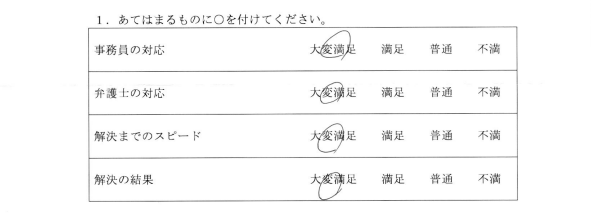 1．あてはまるものに○を付けてください。
事務員の対応 大変満足 満足 普通 不満
弁護士の対応 大変満足 満足 普通 不満
解決までのスピード 大変満足 満足 普通 不満
解決の結果 大変満足 満足 普通 不満